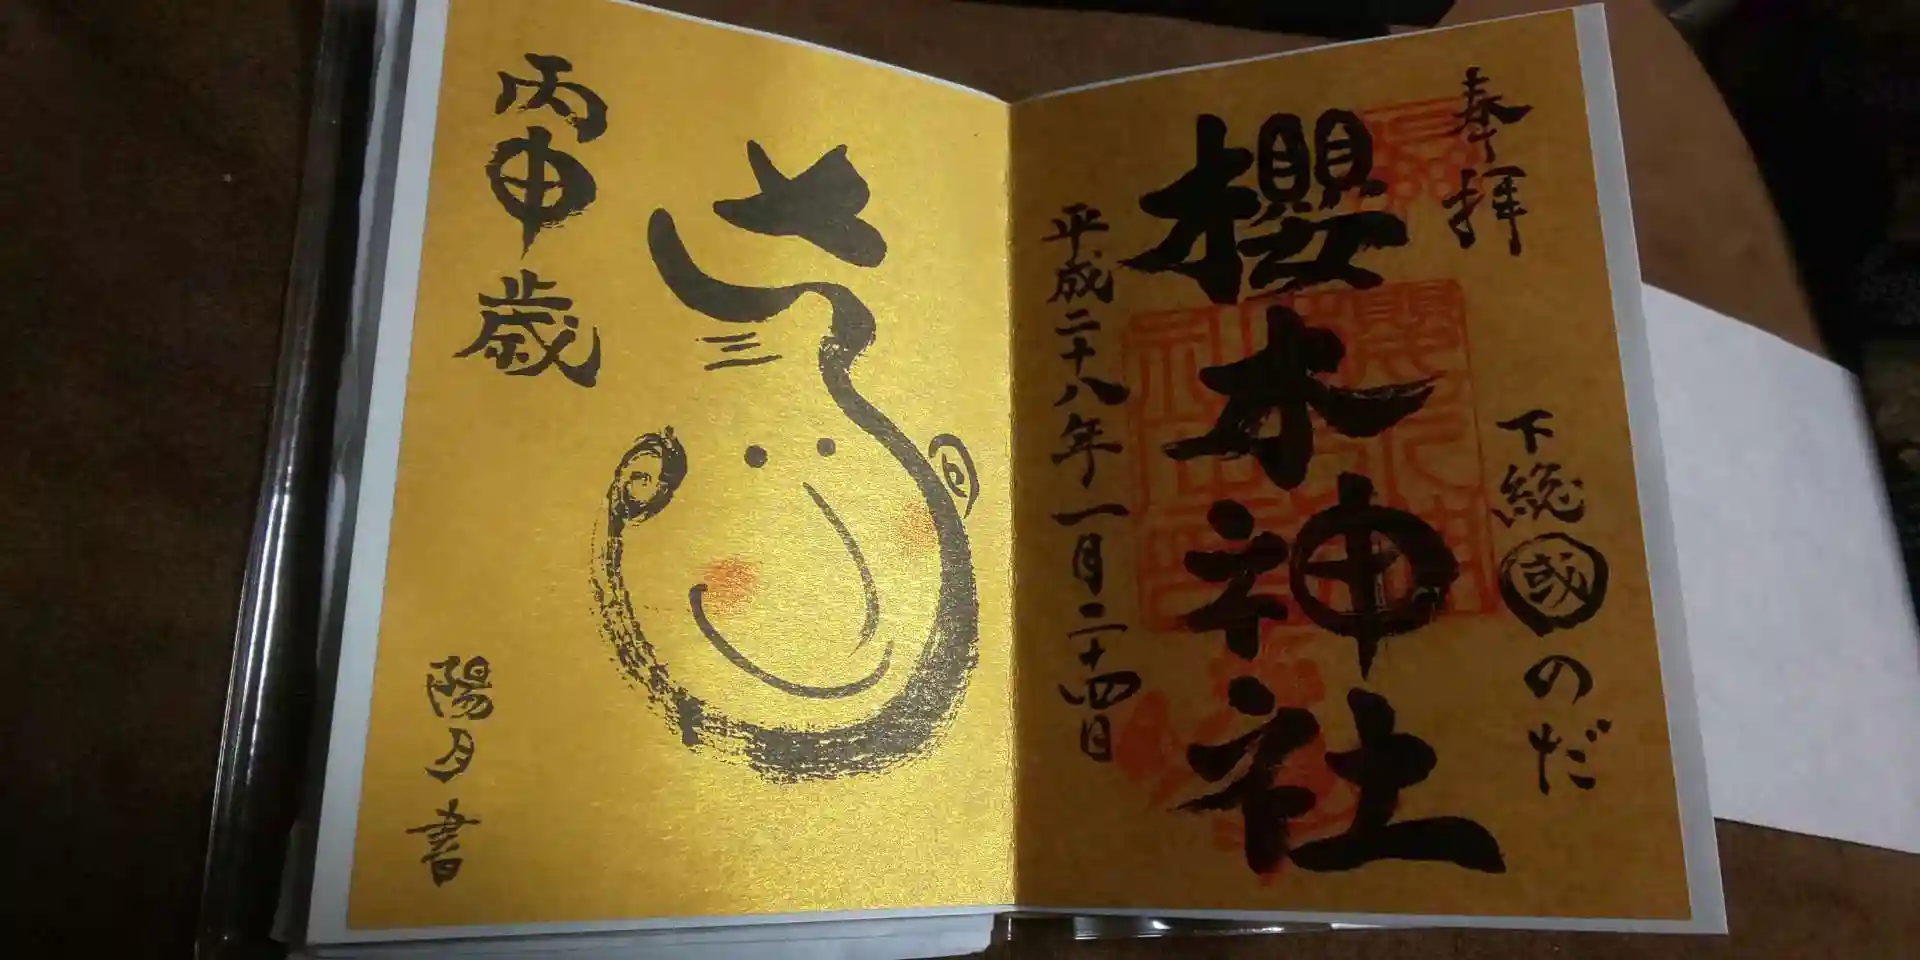 奉拝
下総國のだ
櫻木神社
平成二十八年一月二十四日
丙申歳
陽月書